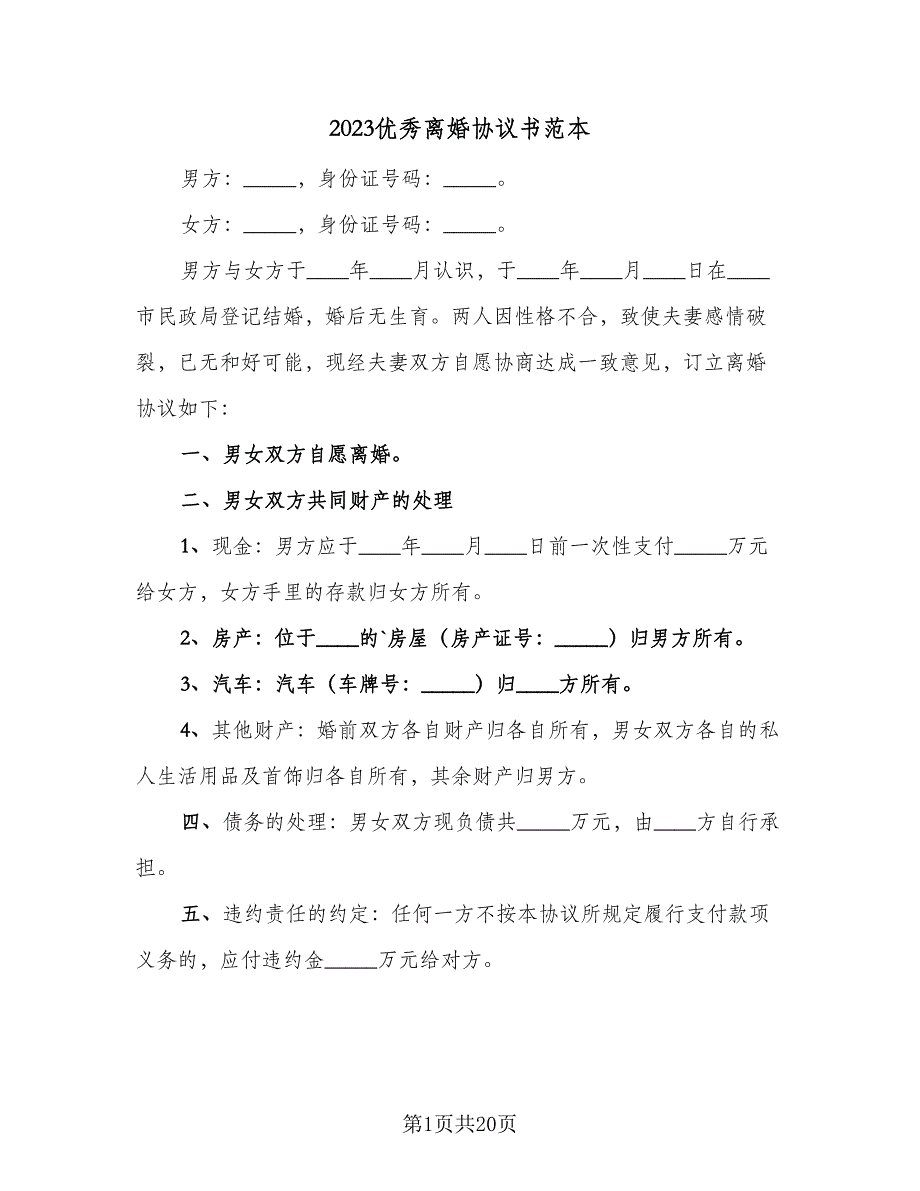 2023优秀离婚协议书范本
男方：_____，身份证号码：_____。
女方：_____，身份证号码：_____。
男方与女方于____年____月认识，于____年____月____日在____
市民政局登记结婚，婚后无生育。两人因性格不合，致使夫妻感情破
裂，已无和好可能，现经夫妻双方自愿协商达成一致意见，订立离婚
协议如下：
一、男女双方自愿离婚。
二、男女双方共同财产的处理
1、现金：男方应于____年____月____日前一次性支付_____万元
给女方，女方手里的存款归女方所有。
2、房产：位于____的`房屋（房产证号：_____）归男方所有。
3、汽车：汽车（车牌号：_____）归____方所有。
4、其他财产：婚前双方各自财产归各自所有，男女双方各自的私
人生活用品及首饰归各自所有，其余财产归男方。
四、债务的处理：男女双方现负债共_____万元，由____方自行承
担。
五、违约责任的约定：任何一方不按本协议所规定履行支付款项
义务的，应付违约金_____万元给对方。
第1页共20页